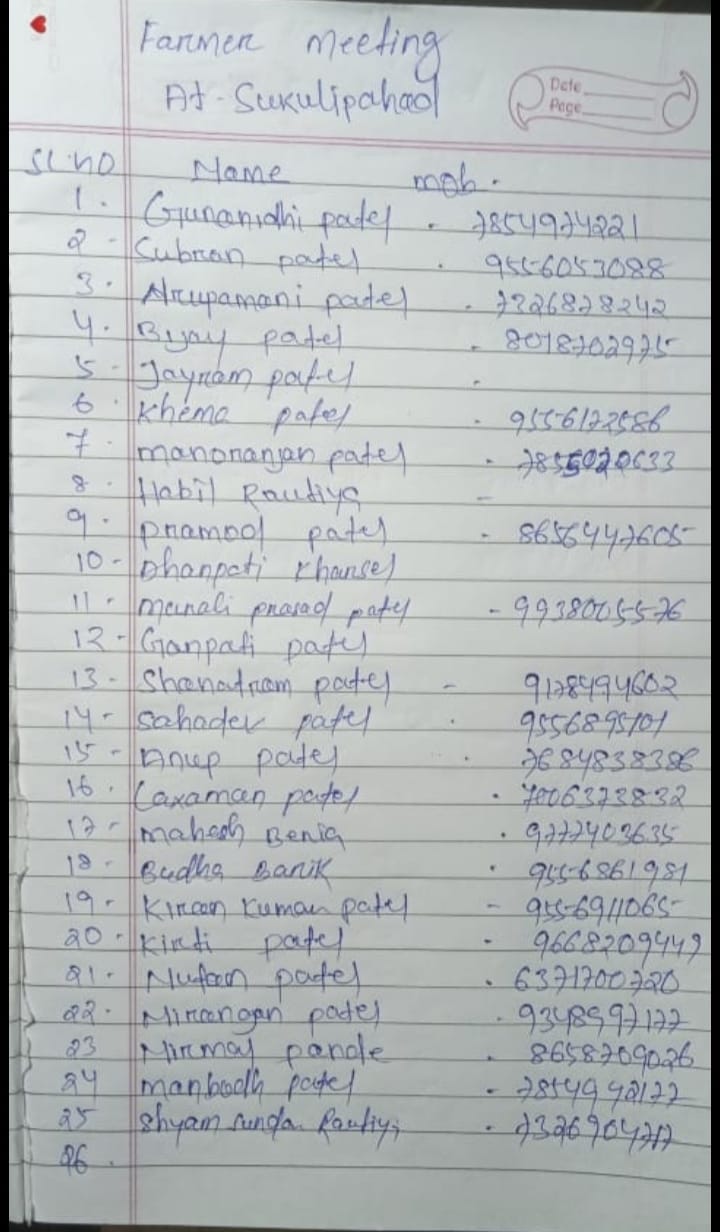 Farmer meeting
At- Sukulipahad
Date
Page
Sl.no Name mob.
1. Gunanidhi patel . 7854974221
2 - Subran patel . 9556053088
3. Arupamani patel . 7326878242
4. Bijay patel . 8018702975
5 - Jayram patel .
6. Khema patel . 9556172586
7. manoranjan patel . 7855020633
8. Habil Rautiya -
9. pramod patel . 8656447605
10 - Dhanpati Khansel
11. prasad patel - 9938005576
12 - Ganpati patel
13. patel - 9178494602
14 - Sahadev patel . 9556895101
15 - Anup patel . 7684838386
16. Laxaman patel . 7006373832
17 - mahesh Benia . 9777403635
18. Budha Barik . 9556861981
19. Kiran Kumar patel - 9556911065
20. Kirti patel - 9668209449
21. Nutan patel . 6371700720
22. Niranjan patel . 9348597177
23 Nirmal pande . 8658709026
24 manbodh patel - 7854992177
25 Shyam sundar . 7326904717
26.